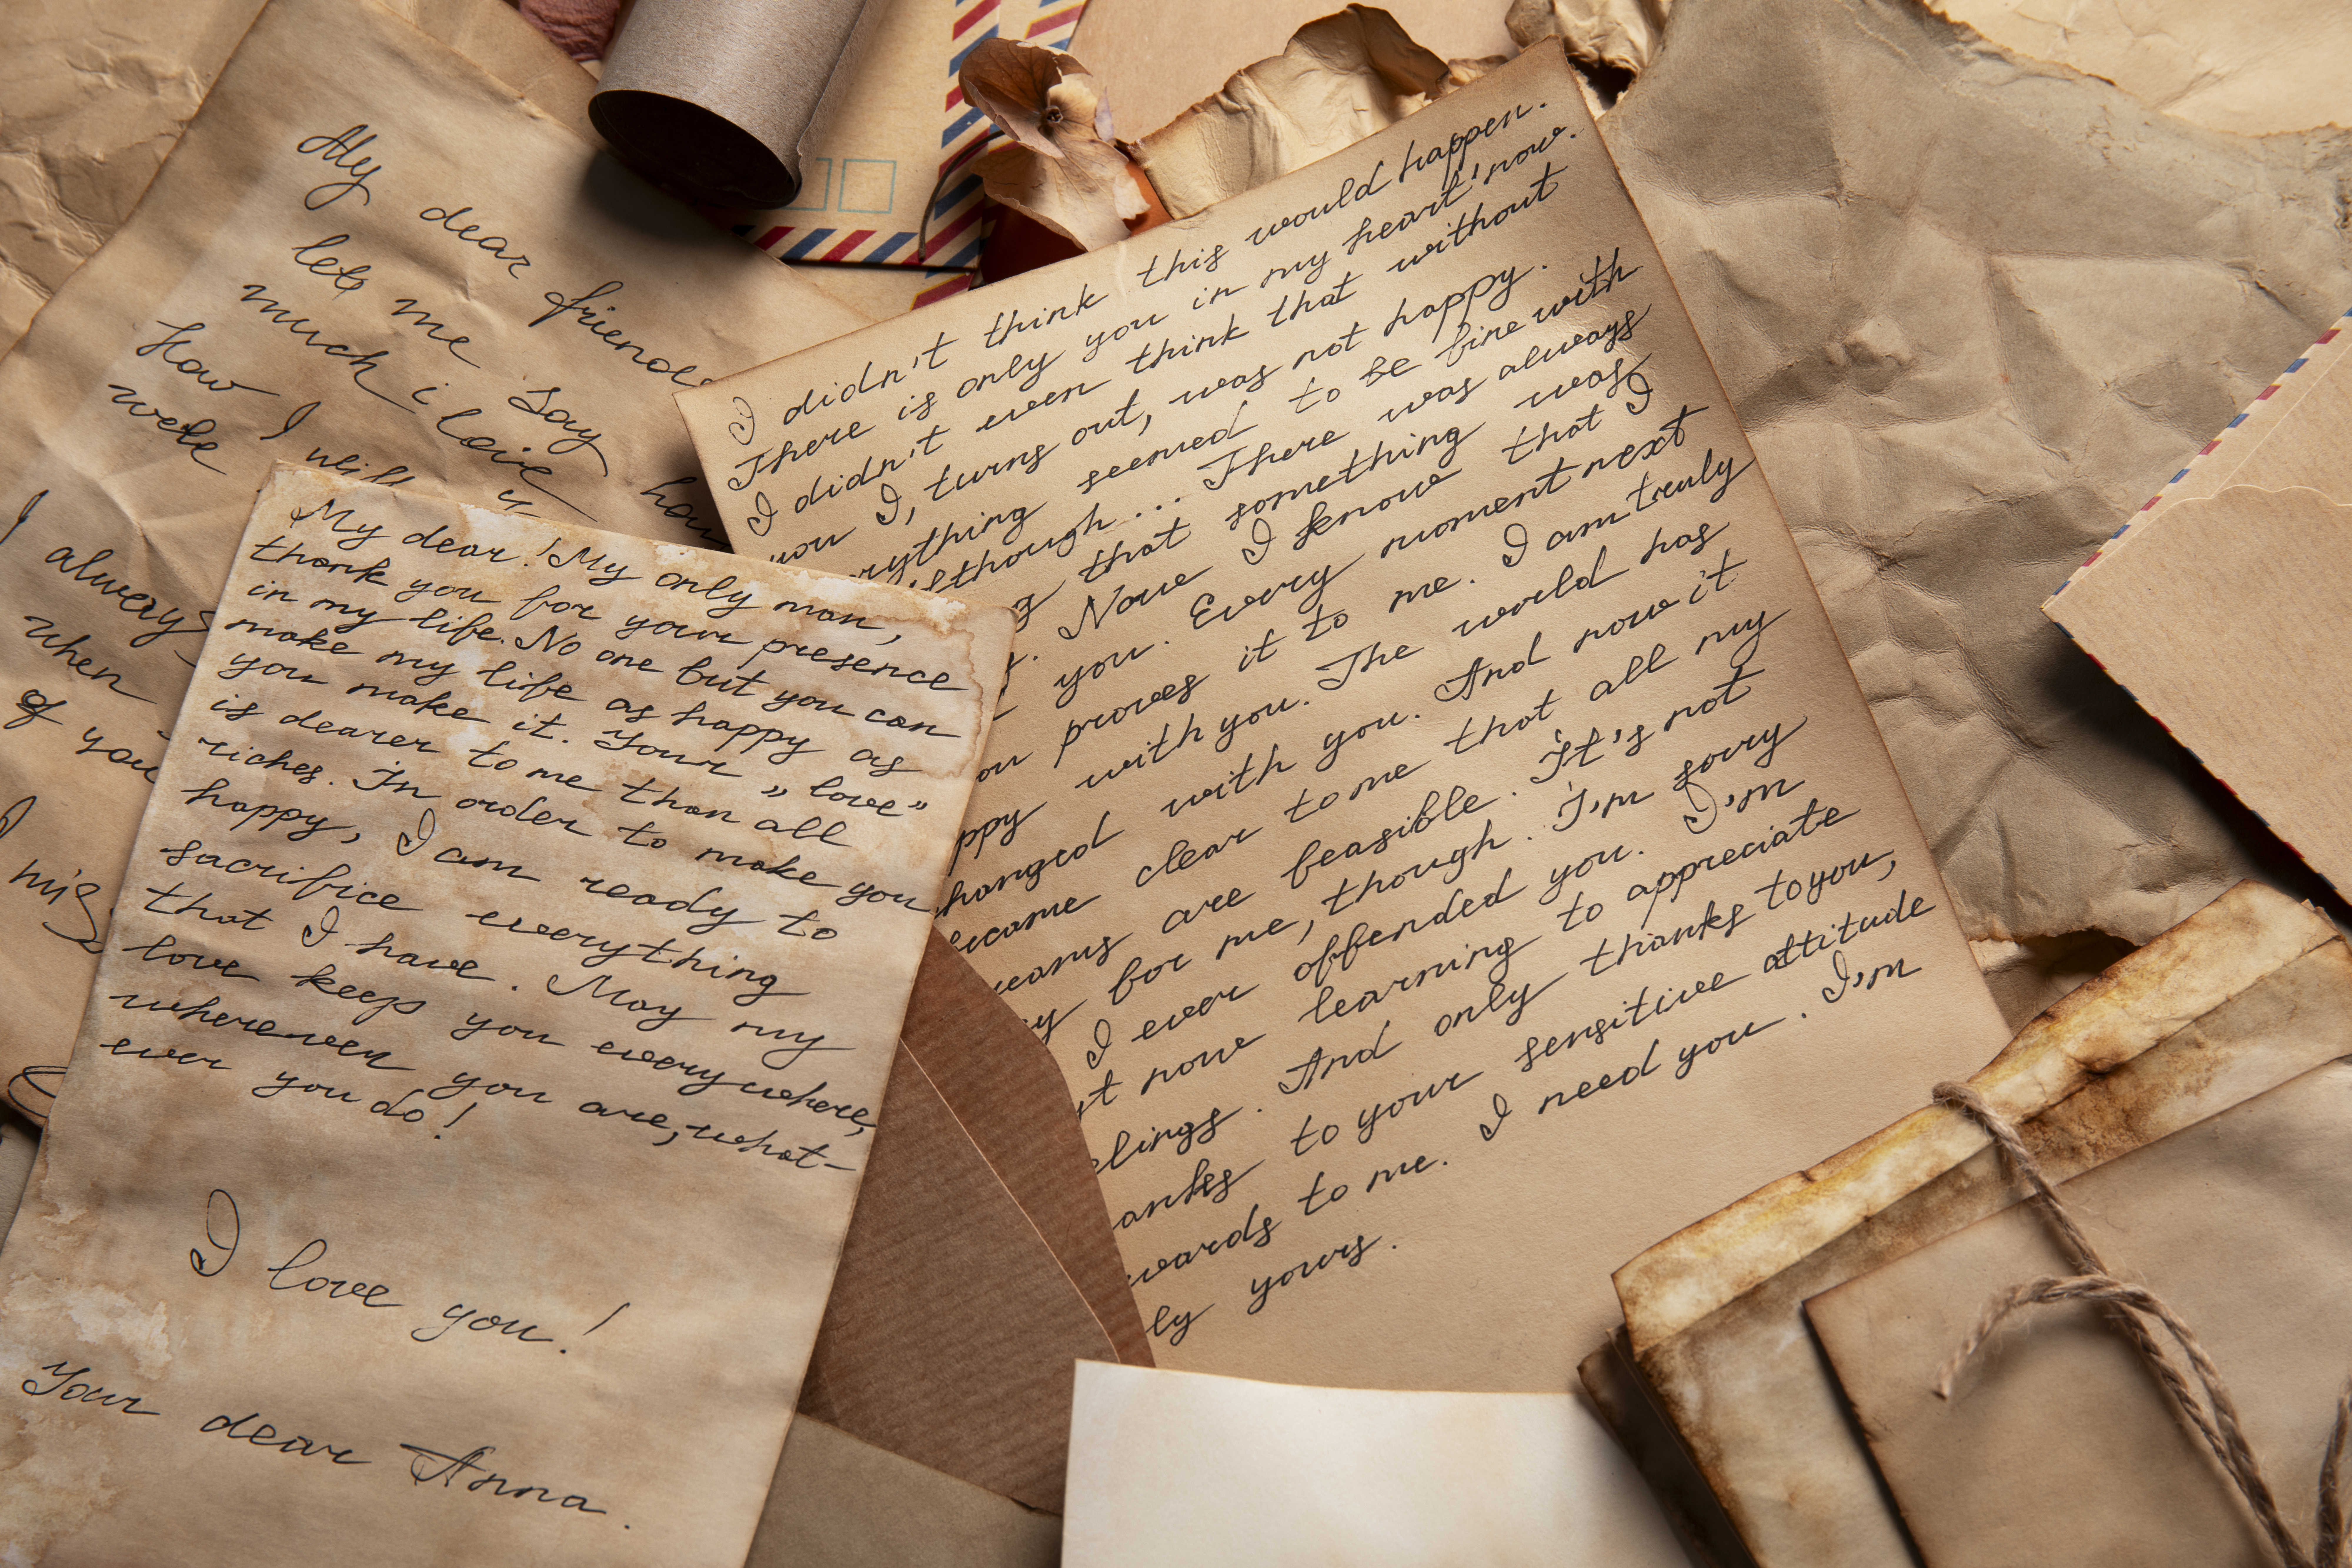 My dear friend
let me say
much i love
how I will
well
how
I always
when
of you
I mis
My dear! My only man,
thank you for your presence
in my life. No one but you can
make my life as happy as
you make it. Your "love"
is dearer to me than all
riches. In order to make you
happy, I am ready to
sacrifice everything
that I have. May my
love keep you everywhere,
wherewer you are, what-
ever you do!
I love you!
Your dear Anna.
I didn't think this would happen.
There is only you in my heart now.
I didn't even think that without
you I, turns out, was not happy.
rything seemed to be fine with
lthough... There was always
g that something was
t. Now I know that I
you. Every moment next
ou proves it to me. I am truly
ppy with you. The world has
hanged with you. And now it
ecame clear to me that all my
reams are feasible. It's not
y for me, though. I'm sorry
I ever offended you. I'm
st now learning to appreciate
elings. And only thanks to you,
anks to your sensitive attitude
wards to me. I need you. I'm
ly yours.